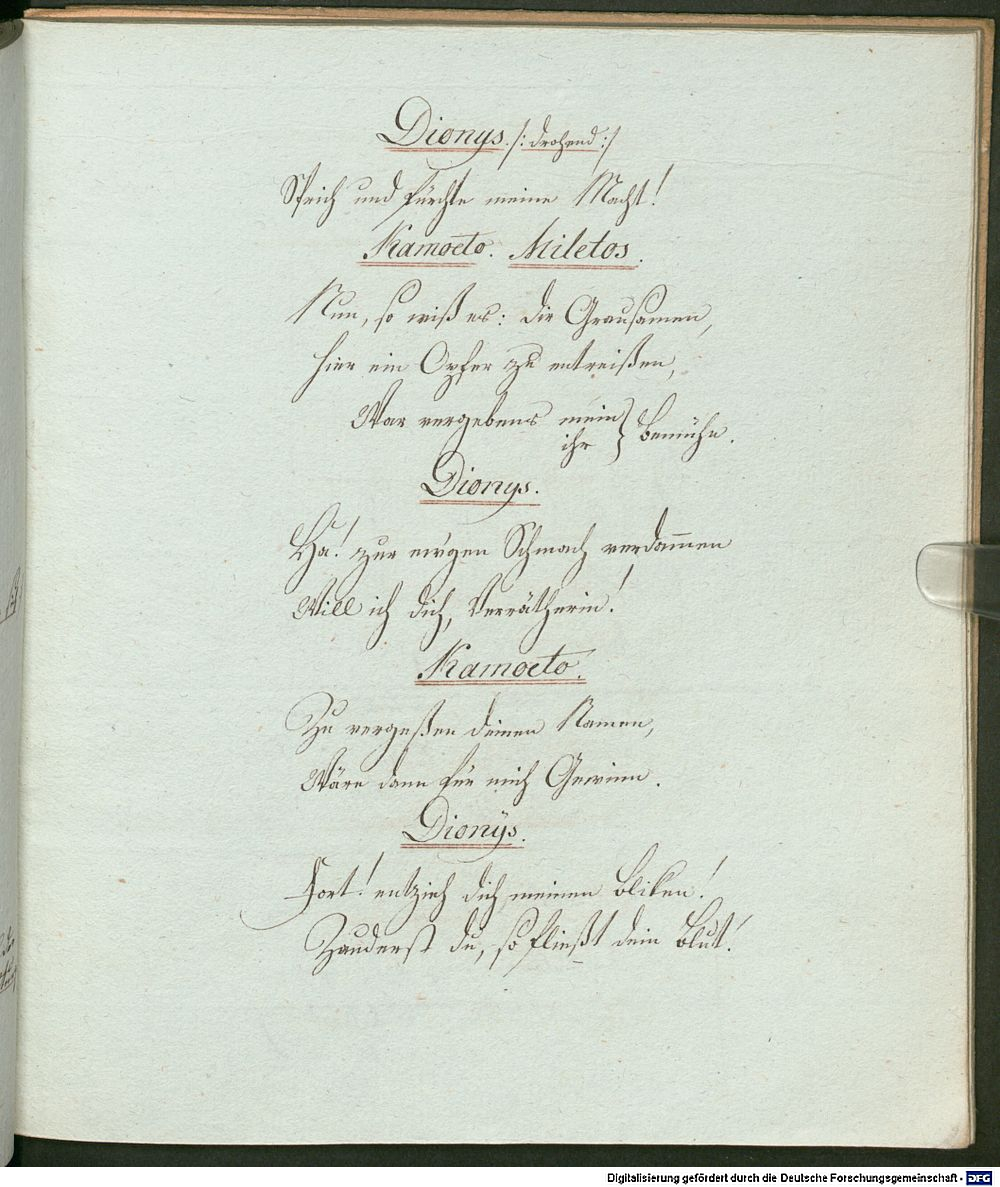 Dionys. /: drohend :/
Sprich und fürchte meine Macht!
Kamoeto. Miletos.
Nun, so wiß es: die Grausamen,
hier ein Opfer zu entreißen,
War vergebens mein } Bemühn.
ihr
Dionys.
Ha! zur ew'gen Schmach verdam̅en
Will ich dich, Verrätherin!
Kamoeto.
Zu vergeßen deinen Namen,
Wäre dann für mich Gewinn.
Dionÿs.
Fort! entzieh dich meinen Bliken!
Zauderst du, so fließt dein Blut!
Digitalisierung gefördert durch die Deutsche Forschungsgemeinschaft - DFG